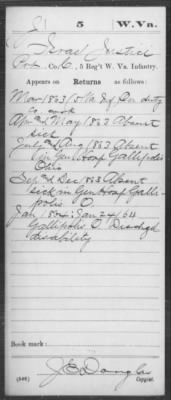 J 5 W.Vn.
Israel Justice
Pvt, Co. C, 5 Reg't W. Va. Infantry.
Appears on Returns as follows:
Mar 1863
Apr and May 1863 Absent
sick
July and Aug 1863 Absent
in Gen Hosp Gallipolis
Ohio
Sep to Dec 1863 Absent
sick in Gen Hosp Galli-
polis O.
Jan 1864: Jan 24/64
Gallipolis O Dischgd
disability
Book mark:
(546) Copyist.